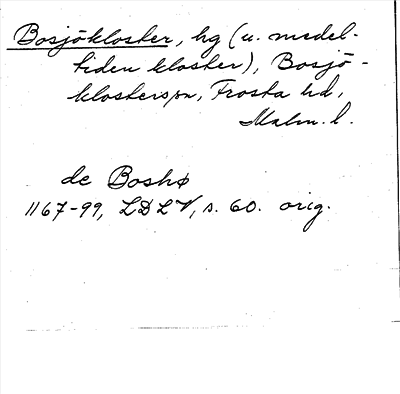 Bosjökloster, hg (u. medel-
tiden kloster), Bosjö-
klosters sn, Frosta hd,
Malm. l.
de Boshø
1167-99, LDLV, s. 60. orig.